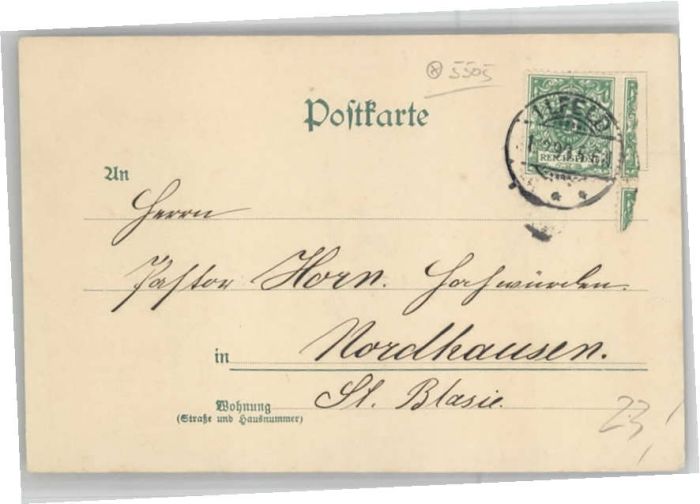 ⊗ 5505
Postkarte
ILFELD
REICHSPOST
An
Herrn
Pastor Horn. Hochwürden.
in Nordhausen.
Wohnung St. Blasie.
(Straße und Hausnummer)
23,